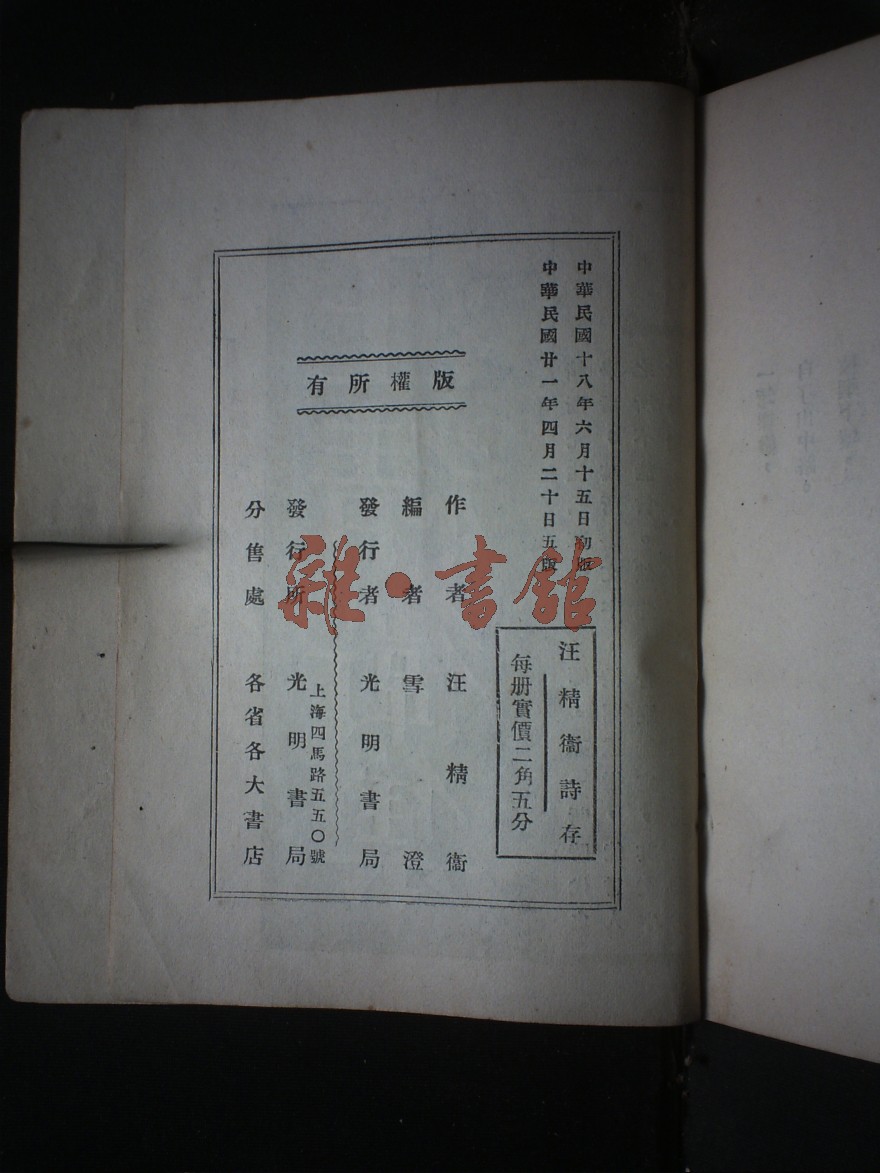 中華民國十八年六月十五日初版
中華民國廿一年四月二十日五版
汪精衞詩存
每册實價二角五分
版權所有
作者 汪精衞
編者 雪澄
發行者 光明書局
上海四馬路五五〇號
發行所 光明書局
分售處 各省各大書店
雜·書館